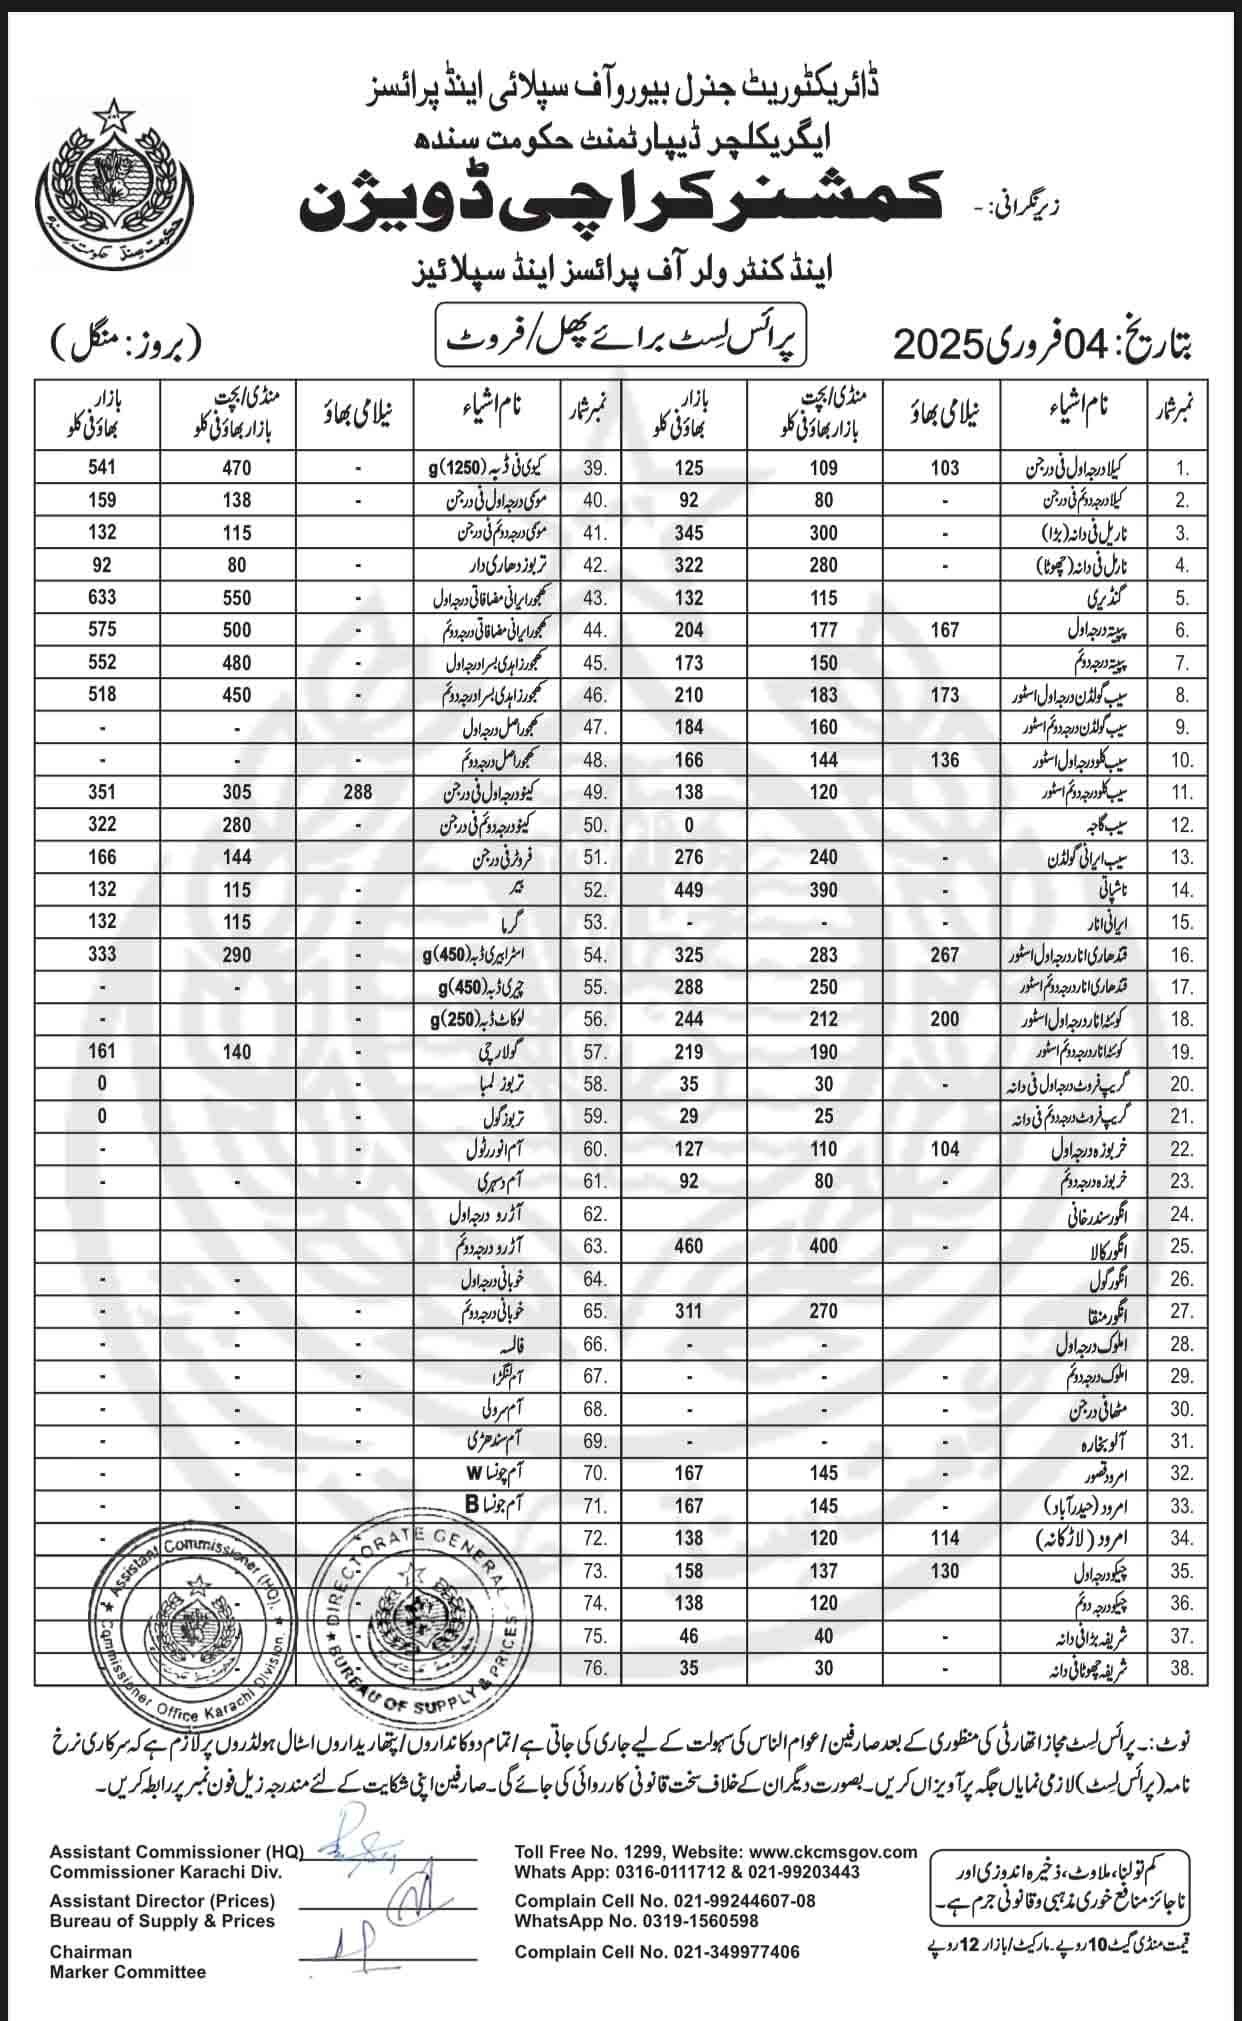 ڈائریکٹوریٹ جنرل بیورو آف سپلائی اینڈ پرائسز
ایگریکلچر ڈیپارٹمنٹ حکومت سندھ
زیر نگرانی: - کمشنر کراچی ڈویژن
اینڈ کنٹرولر آف پرائسز اینڈ سپلائیز
حکومت سندھ
بتاریخ: 04 فروری 2025
پرائس لسٹ برائے پھل/فروٹ
(بروز: منگل)
نمبر شمار نام اشیاء نیلامی بھاؤ منڈی/بچت بازار بھاؤ فی کلو بازار بھاؤ فی کلو
1. کیلا درجہ اول فی درجن 103 109 125
2. کیلا درجہ دوئم فی درجن - 80 92
3. ناریل فی دانہ (بڑا) - 300 345
4. ناریل فی دانہ (چھوٹا) - 280 322
5. گنڈیری 115 132
6. پپیتہ درجہ اول 167 177 204
7. پپیتہ درجہ دوئم 150 173
8. سیب گولڈن درجہ اول اسٹور 173 183 210
9. سیب گولڈن درجہ دوئم اسٹور 160 184
10. سیب کلو درجہ اول اسٹور 136 144 166
11. سیب کلو درجہ دوئم اسٹور 120 138
12. سیب گاچہ 0
13. سیب ایرانی گولڈن - 240 276
14. ناشپاتی - 390 449
15. ایرانی انار - - -
16. قندھاری انار درجہ اول اسٹور 267 283 325
17. قندھاری انار درجہ دوئم اسٹور 250 288
18. کوئٹہ انار درجہ اول اسٹور 200 212 244
19. کوئٹہ انار درجہ دوئم اسٹور 190 219
20. گریپ فروٹ درجہ اول فی دانہ - 30 35
21. گریپ فروٹ درجہ دوئم فی دانہ 25 29
22. خربوزہ درجہ اول 104 110 127
23. خربوزہ درجہ دوئم - 80 92
24. انگور سندرخانی
25. انگور کالا - 400 460
26. انگور گول
27. انگور منقا 270 311
28. املوک درجہ اول - -
29. املوک درجہ دوئم - - -
30. مٹھا فی درجن - - -
31. آلو بخارہ - - -
32. امرود قصور - 145 167
33. امرود (حیدرآباد) - 145 167
34. امرود (لاڑکانہ) 114 120 138
35. چیکو درجہ اول 130 137 158
36. چیکو درجہ دوئم 120 138
37. شریفہ بڑا فی دانہ - 40 46
38. شریفہ چھوٹا فی دانہ - 30 35
نمبر شمار نام اشیاء نیلامی بھاؤ منڈی/بچت بازار بھاؤ فی کلو بازار بھاؤ فی کلو
39. کیوی فی ڈبہ (1250)g - 470 541
40. موسمی درجہ اول فی درجن - 138 159
41. موسمی درجہ دوئم فی درجن - 115 132
42. تربوز دھاری دار - 80 92
43. کھجور ایرانی مضافاتی درجہ اول - 550 633
44. کھجور ایرانی مضافاتی درجہ دوئم - 500 575
45. کھجور زاہدی بسرا درجہ اول - 480 552
46. کھجور زاہدی بسرا درجہ دوئم - 450 518
47. کھجور اصل درجہ اول - - -
48. کھجور اصل درجہ دوئم - - -
49. کینو درجہ اول فی درجن 288 305 351
50. کینو درجہ دوئم فی درجن - 280 322
51. فروٹر فی درجن - 144 166
52. بیر - 115 132
53. گرما - 115 132
54. اسٹرابیری ڈبہ (450)g - 290 333
55. چیری ڈبہ (450)g - - -
56. لوکاٹ ڈبہ (250)g - -
57. گولارچی - 140 161
58. تربوز لمبا - 0
59. تربوز گول - 0
60. آم انور رٹول - -
61. آم دسہری - - -
62. آڑو درجہ اول
63. آڑو درجہ دوئم
64. خوبانی درجہ اول - -
65. خوبانی درجہ دوئم - - -
66. فالسہ - - -
67. آم لنگڑا - - -
68. آم سرولی - - -
69. آم سندھڑی - - -
70. آم چونسا W - - -
71. آم چونسا B - - -
72. -
73.
74.
75.
76.
Assistant Commissioner (HQ), Commissioner Office Karachi Division.
DIRECTORATE GENERAL BUREAU OF SUPPLY & PRICES
نوٹ:۔ پرائس لسٹ مجاز اتھارٹی کی منظوری کے بعد صارفین/عوام الناس کی سہولت کے لیے جاری کی جاتی ہے/تمام دوکانداروں/پتھاریداروں اسٹال ہولڈروں پر لازم ہے کہ سرکاری نرخ
نامہ (پرائس لسٹ) لازمی نمایاں جگہ پر آویزاں کریں۔ بصورت دیگر ان کے خلاف سخت قانونی کارروائی کی جائے گی۔ صارفین اپنی شکایت کے لئے مندرجہ زیل فون نمبر پر رابطہ کریں۔
Assistant Commissioner (HQ)
Commissioner Karachi Div.
Assistant Director (Prices)
Bureau of Supply & Prices
Chairman
Marker Committee
Toll Free No. 1299, Website: www.ckcmsgov.com
Whats App: 0316-0111712 & 021-99203443
Complain Cell No. 021-99244607-08
WhatsApp No. 0319-1560598
Complain Cell No. 021-349977406
کم تولنا، ملاوٹ، ذخیرہ اندوزی اور
ناجائز منافع خوری مذہبی و قانونی جرم ہے۔
قیمت منڈی گیٹ 10 روپے۔ مارکیٹ/بازار 12 روپے